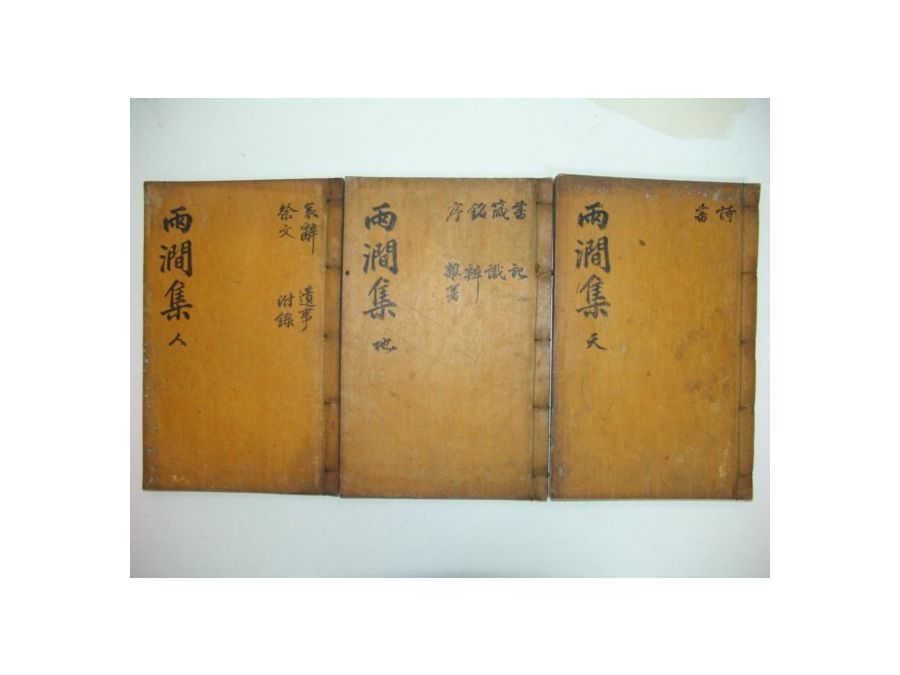 詩
書
雨澗集 天
書 記
箴 識
銘 辨
序 雜著
雨澗集 地
哀辭 遺事
祭文 附錄
雨澗集 人